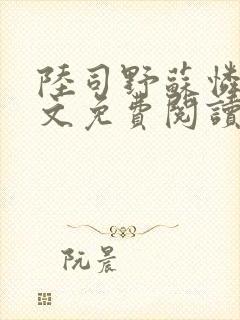 陸司野蘇憐
文免費閱讀
阮晨